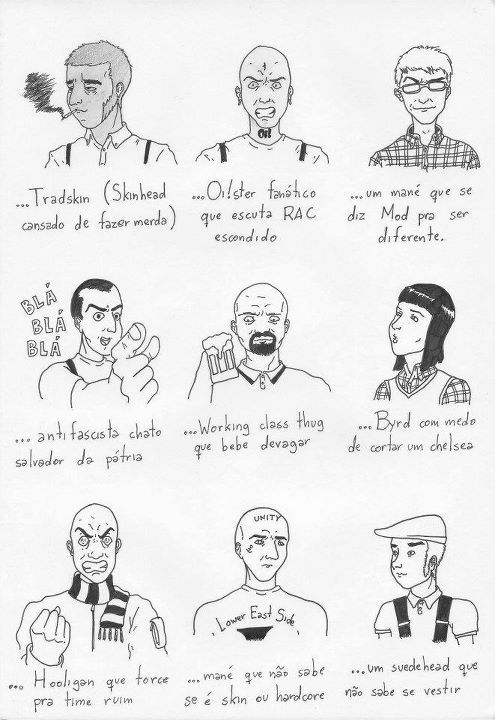 ...Tradskin (Skinhead
cansado de fazer merda)
Oi!
...Oi!ster fanático
que escuta RAC
escondido
...um mané que se
diz Mod pra ser
diferente.
BLÁ
BLÁ
BLÁ
...antifascista chato
salvador da pátria
...Working class thug
que bebe devagar
...Byrd com medo
de cortar um chelsea
... Hooligan que torce
pra time ruim
UNITY
Lower East Side
...mané que não sabe
se é skin ou hardcore
...um suedehead que
não sabe se vestir